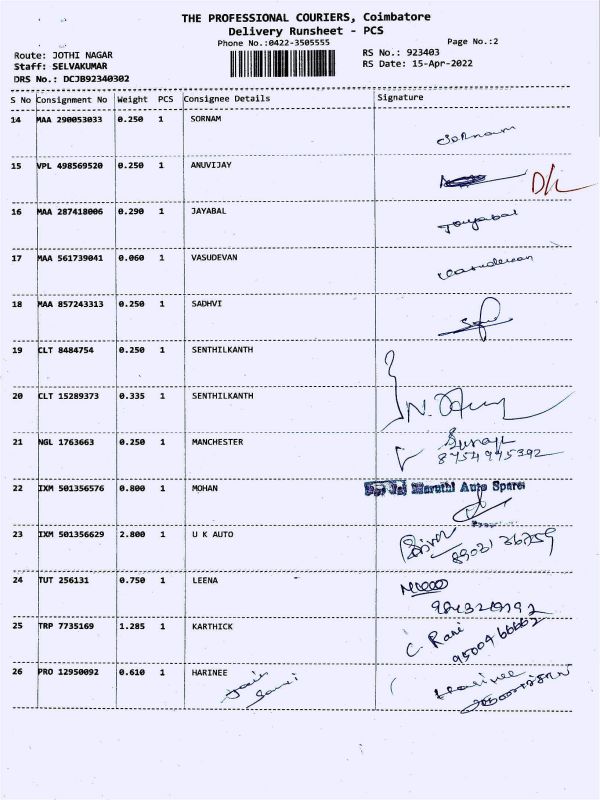 THE PROFESSIONAL COURIERS, Coimbatore
Delivery Runsheet - PCS
Phone No.:0422-3505555
Page No.:2
Route: JOTHI NAGAR
RS No.: 923403
Staff: SELVAKUMAR
RS Date: 15-Apr-2022
DRS No.: DCJB92340302
S No Consignment No Weight PCS Consignee Details Signature
14 MAA 290053033 0.250 1 SORNAM Sornam
15 VPL 498569520 0.250 1 ANUVIJAY D/L
16 MAA 287418006 0.290 1 JAYABAL Jayabal
17 MAA 561739041 0.060 1 VASUDEVAN Vasudevan
18 MAA 857243313 0.250 1 SADHVI
19 CLT 8484754 0.250 1 SENTHILKANTH
20 CLT 15289373 0.335 1 SENTHILKANTH N.
21 NGL 1763663 0.250 1 MANCHESTER
8754995392
22 IXM 501356576 0.800 1 MOHAN Maruthi Auto Spares
23 IXM 501356629 2.800 1 U K AUTO
24 TUT 256131 0.750 1 LEENA
25 TRP 7735169 1.285 1 KARTHICK C. Rani
26 PRO 12950092 0.610 1 HARINEE Harinee